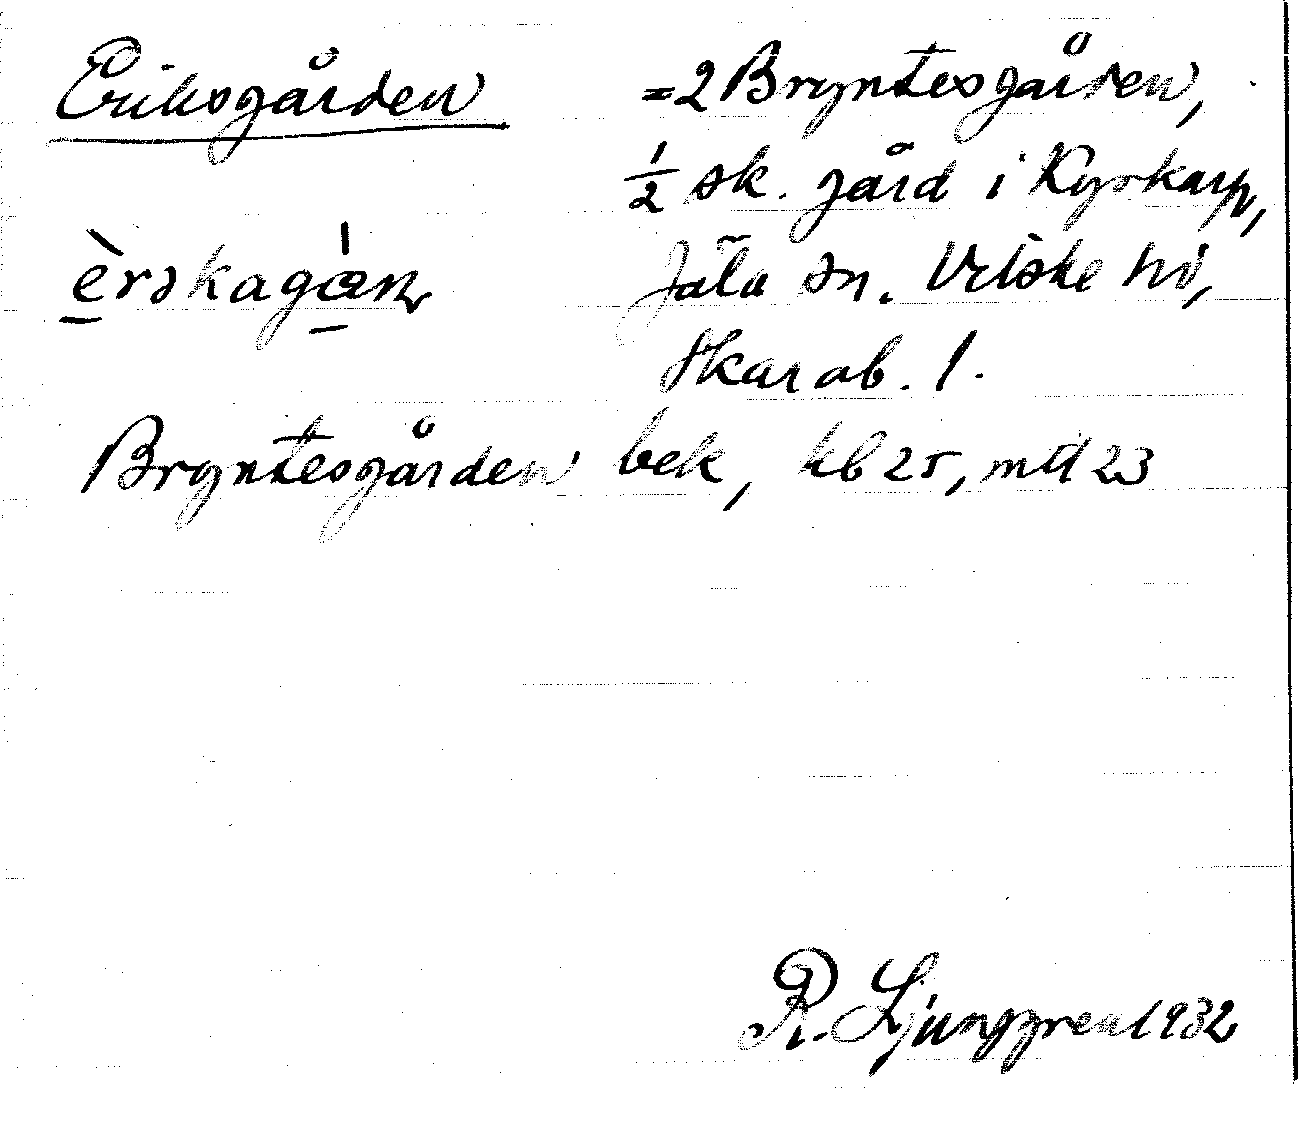 Eriksgården = 2 Bryntesgården,
½ sk. gård i Kyrkarp,
èrskagá̱n
Jäla sn. Vilske hd,
Skarab. l.
Bryntesgården bek, kb 25, mtl 23
R. Ljunggren 1932